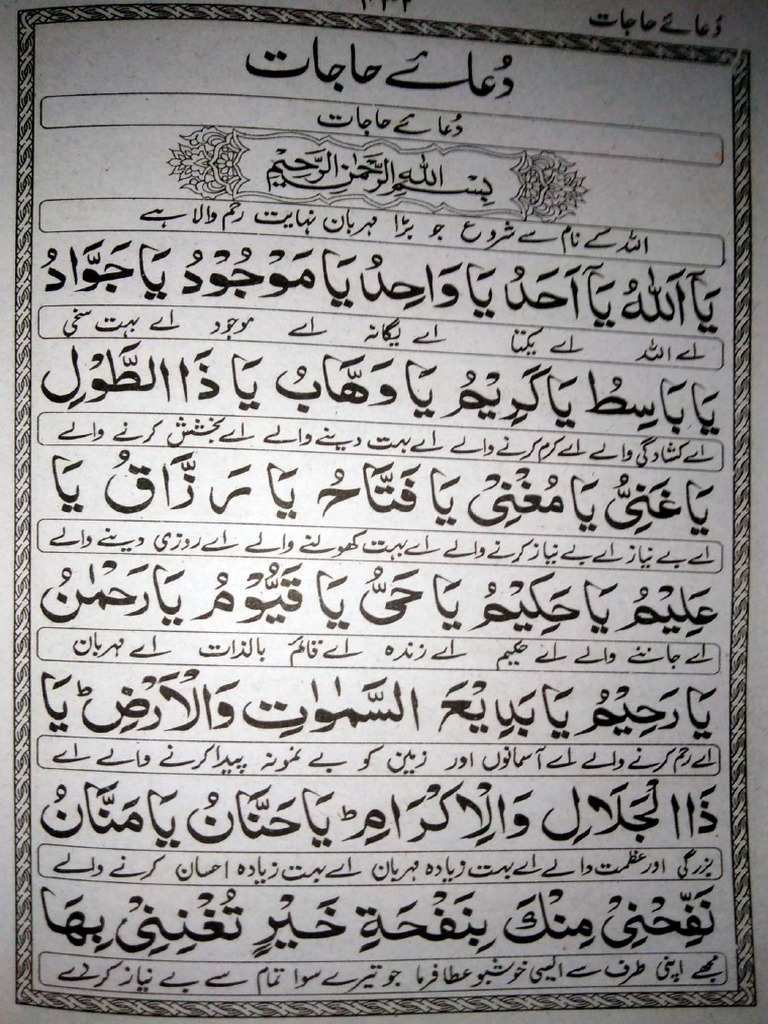 دُعائے حاجات
دُعائے حاجات
دُعائے حاجات
بِسْمِ اللهِ الرَّحْمٰنِ الرَّحِيْمِ
اللہ کے نام سے شروع جو بڑا مہربان نہایت رحم والا ہے
يَآ اَللّٰهُ يَآ اَحَدُ يَا وَاحِدُ يَا مَوْجُوْدُ يَا جَوَّادُ
اے اللہ اے یکتا اے یگانہ اے موجود اے بہت سخی
يَا بَاسِطُ يَا كَرِيْمُ يَا وَهَّابُ يَا ذَا الطَّوْلِ
اے کشادگی والے اے کرم کرنے والے اے بہت دینے والے اے بخشش کرنے والے
يَا غَنِيُّ يَا مُغْنِيْ يَا فَتَّاحُ يَا رَزَّاقُ يَا
اے بے نیاز اے بے نیاز کرنے والے اے بہت کھولنے والے اے روزی دینے والے
عَلِيْمُ يَا حَكِيْمُ يَا حَيُّ يَا قَيُّوْمُ يَا رَحْمٰنُ
اے جاننے والے اے حکیم اے زندہ اے قائم بالذات اے مہربان
يَا رَحِيْمُ يَا بَدِيْعَ السَّمٰوٰتِ وَالْاَرْضِ ؕ يَا
اے رحم کرنے والے اے آسمانوں اور زمین کو بے نمونہ پیدا کرنے والے اے
ذَا الْجَلَالِ وَالْاِكْرَامِ ؕ يَا حَنَّانُ يَا مَنَّانُ
بزرگی اور عظمت والے اے بہت زیادہ مہربان اے بہت زیادہ احسان کرنے والے
نَفِّحْنِيْ مِنْكَ بِنَفْحَةِ خَيْرٍ تُغْنِنِيْ بِهَا
مجھے اپنی طرف سے ایسی خوشبو عطا فرما جو تیرے سوا تمام سے بے نیاز کر دے